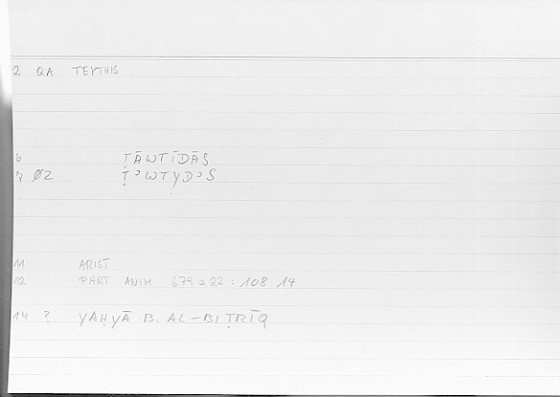 2 QA TEYTHIS
6 ṬĀWTĪDĀS
7 ØZ ṬꜢWTYDꜢS
11 ARIST
12 PART ANIM 679 a 22 : 108 14
14 ? YAḤYĀ B. AL-BIṬRĪQ